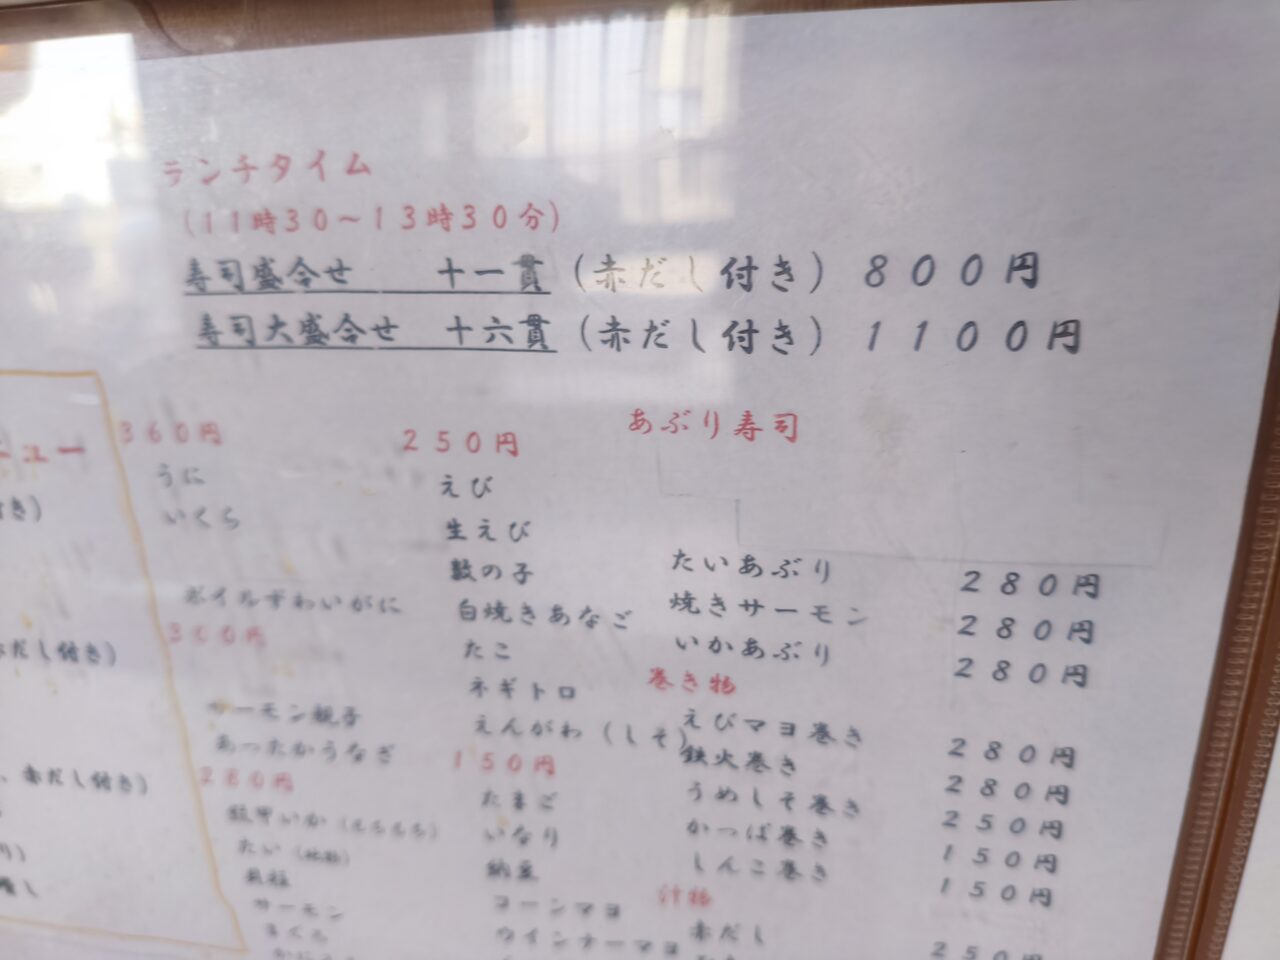 ランチタイム
(11時30〜13時30分)
寿司盛合せ 十一貫(赤だし付き)800円
寿司大盛合せ 十六貫(赤だし付き)1100円
ュー
付き)
だし付き)
、赤だし付き)
360円
うに
いくら
ボイルずわいがに
300円
サーモン親子
あったかうなぎ
280円
たい
サーモン
まぐろ
250円
えび
生えび
数の子
白焼きあなご
たこ
ネギトロ
えんがわ(しそ)
150円
たまご
いなり
納豆
コーンマヨ
ウインナーマヨ
あぶり寿司
たいあぶり 280円
焼きサーモン 280円
いかあぶり 280円
巻き物
えびマヨ巻き 280円
鉄火巻き 280円
うめしそ巻き 250円
かっぱ巻き 150円
しんこ巻き 150円
汁物
赤だし 250円